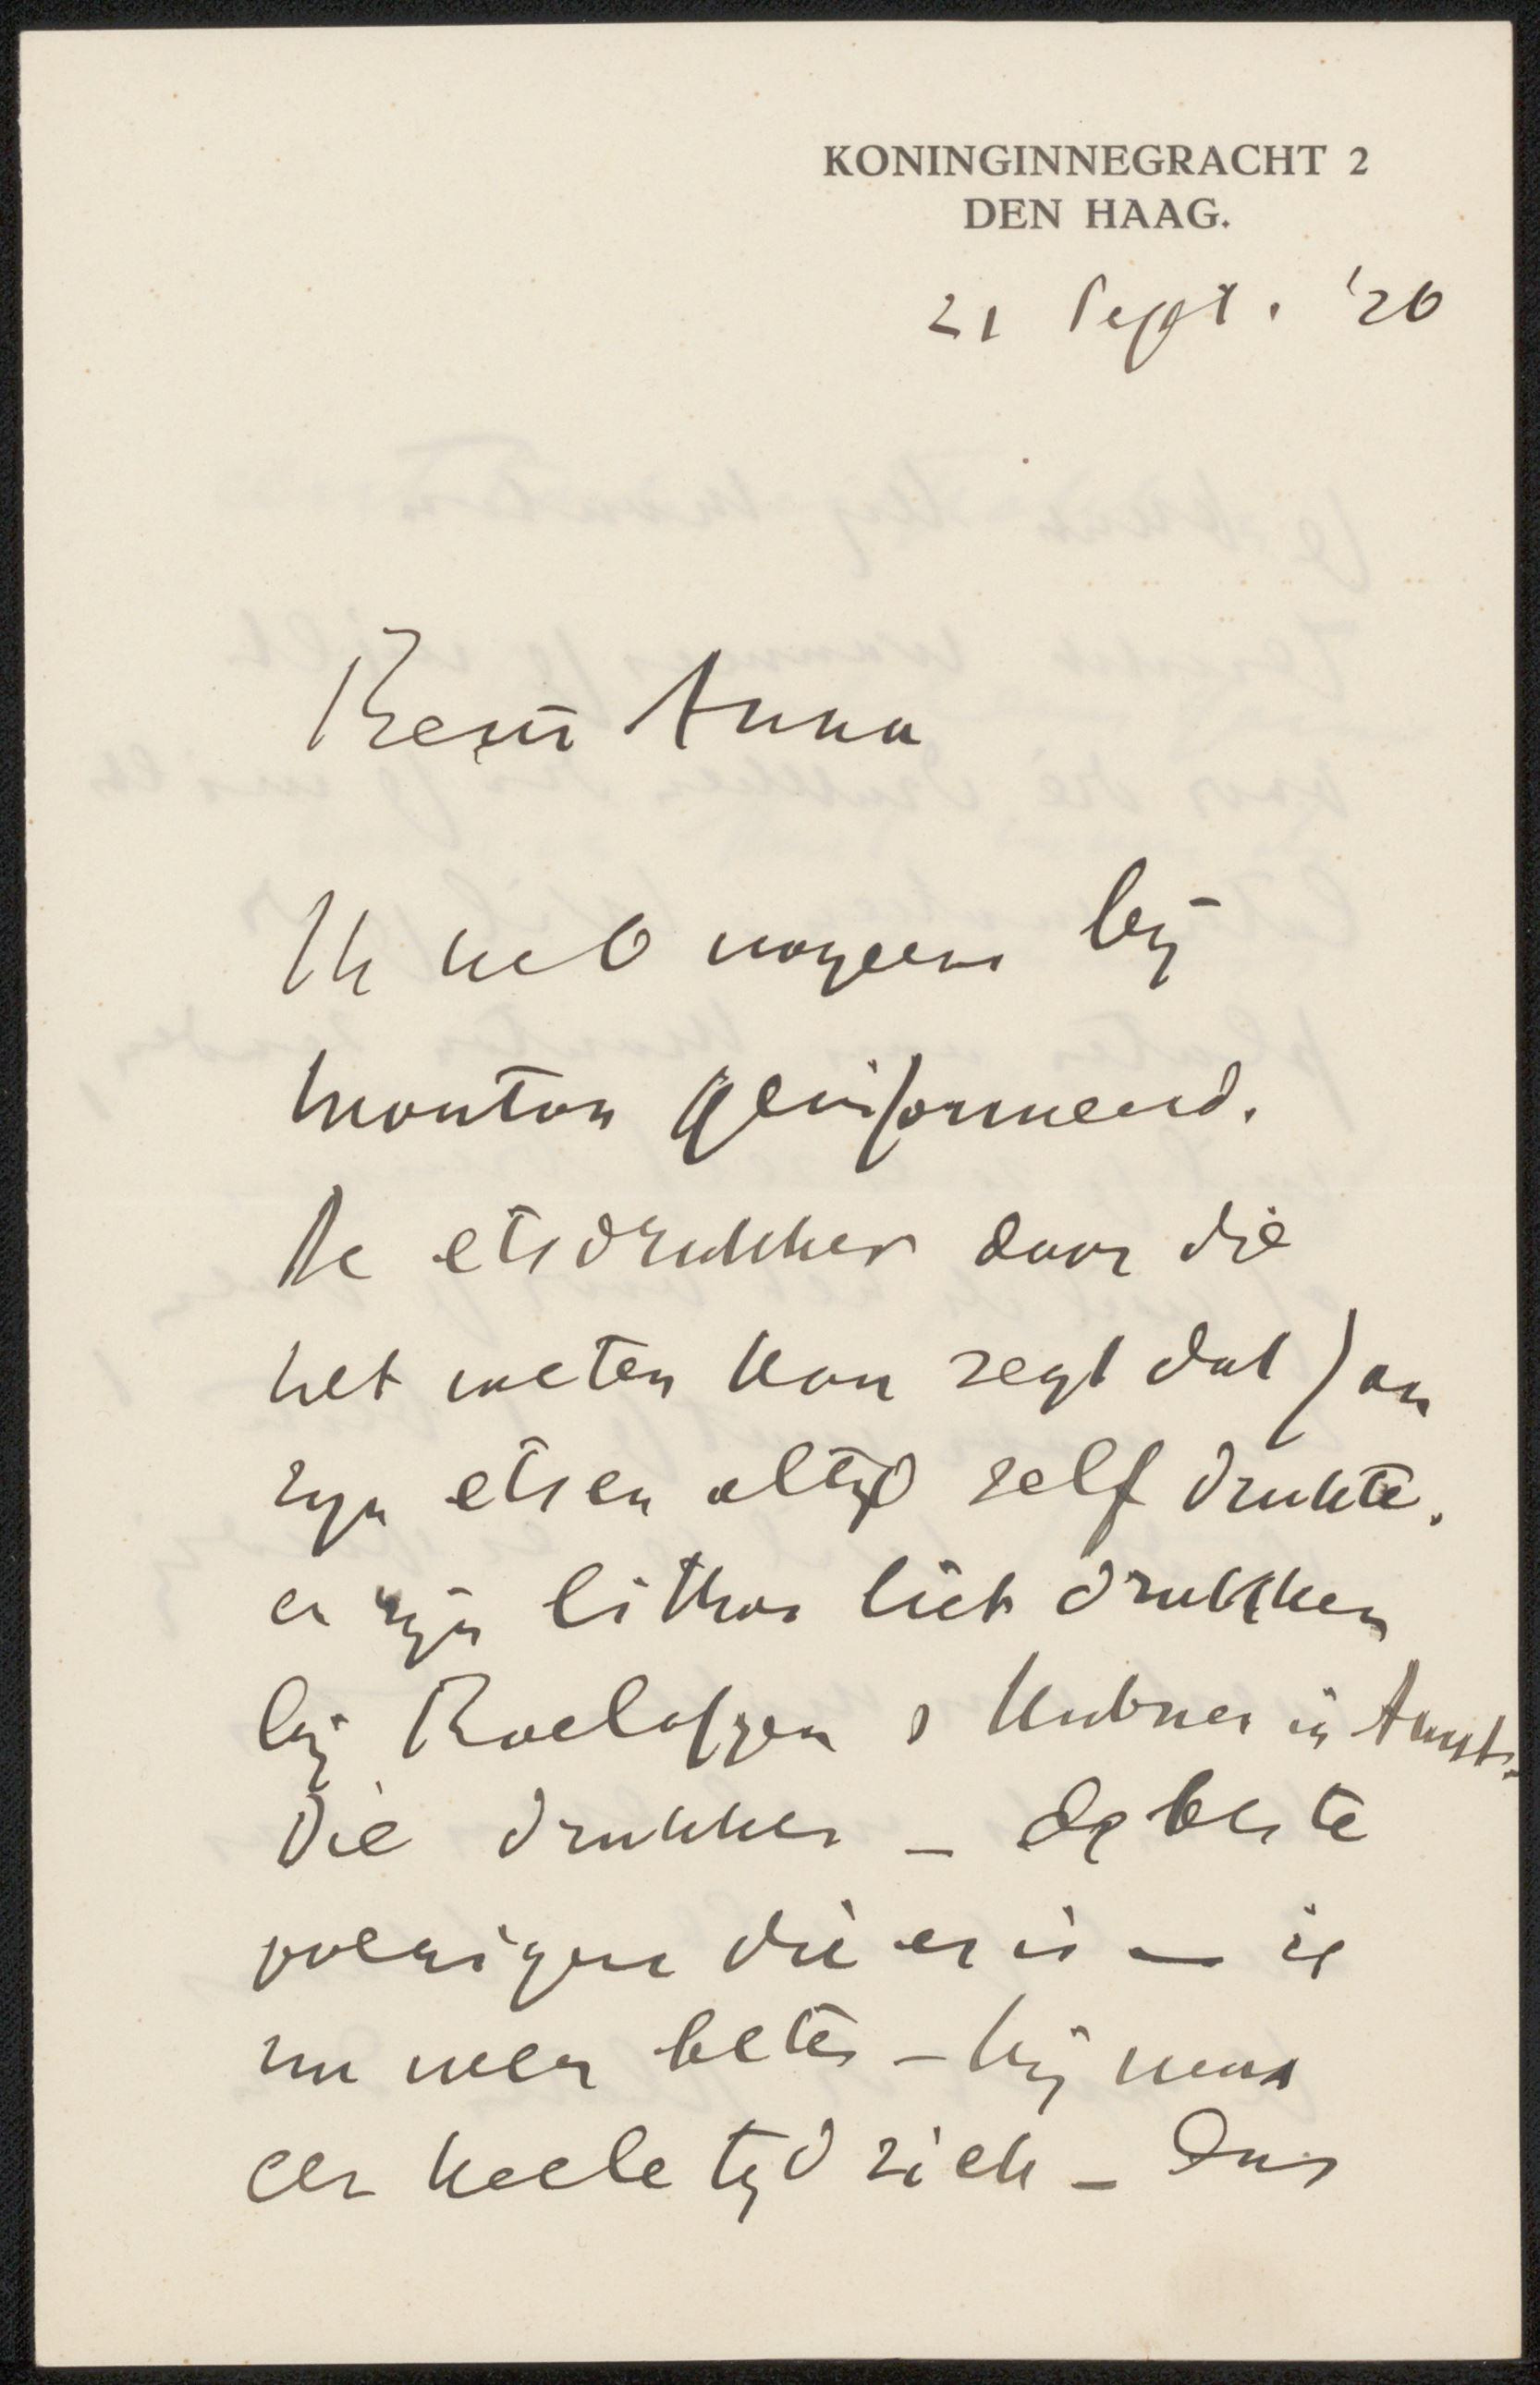 KONINGINNEGRACHT 2
DEN HAAG.
21 Sept. '26
Beste Anna
Ik heb nogeens bij
Mouton geinformeerd.
De etsdrukker daar die
het weten kan zegt dat Jan
zyn etsen altyd zelf drukte.
en zyn lithos liet drukken
bij Roelofzen & Hubner in Amst.
Die drukker – de beste
overigens die er is – is
nu weer beter – hij was
een heele tyd ziek – Dus